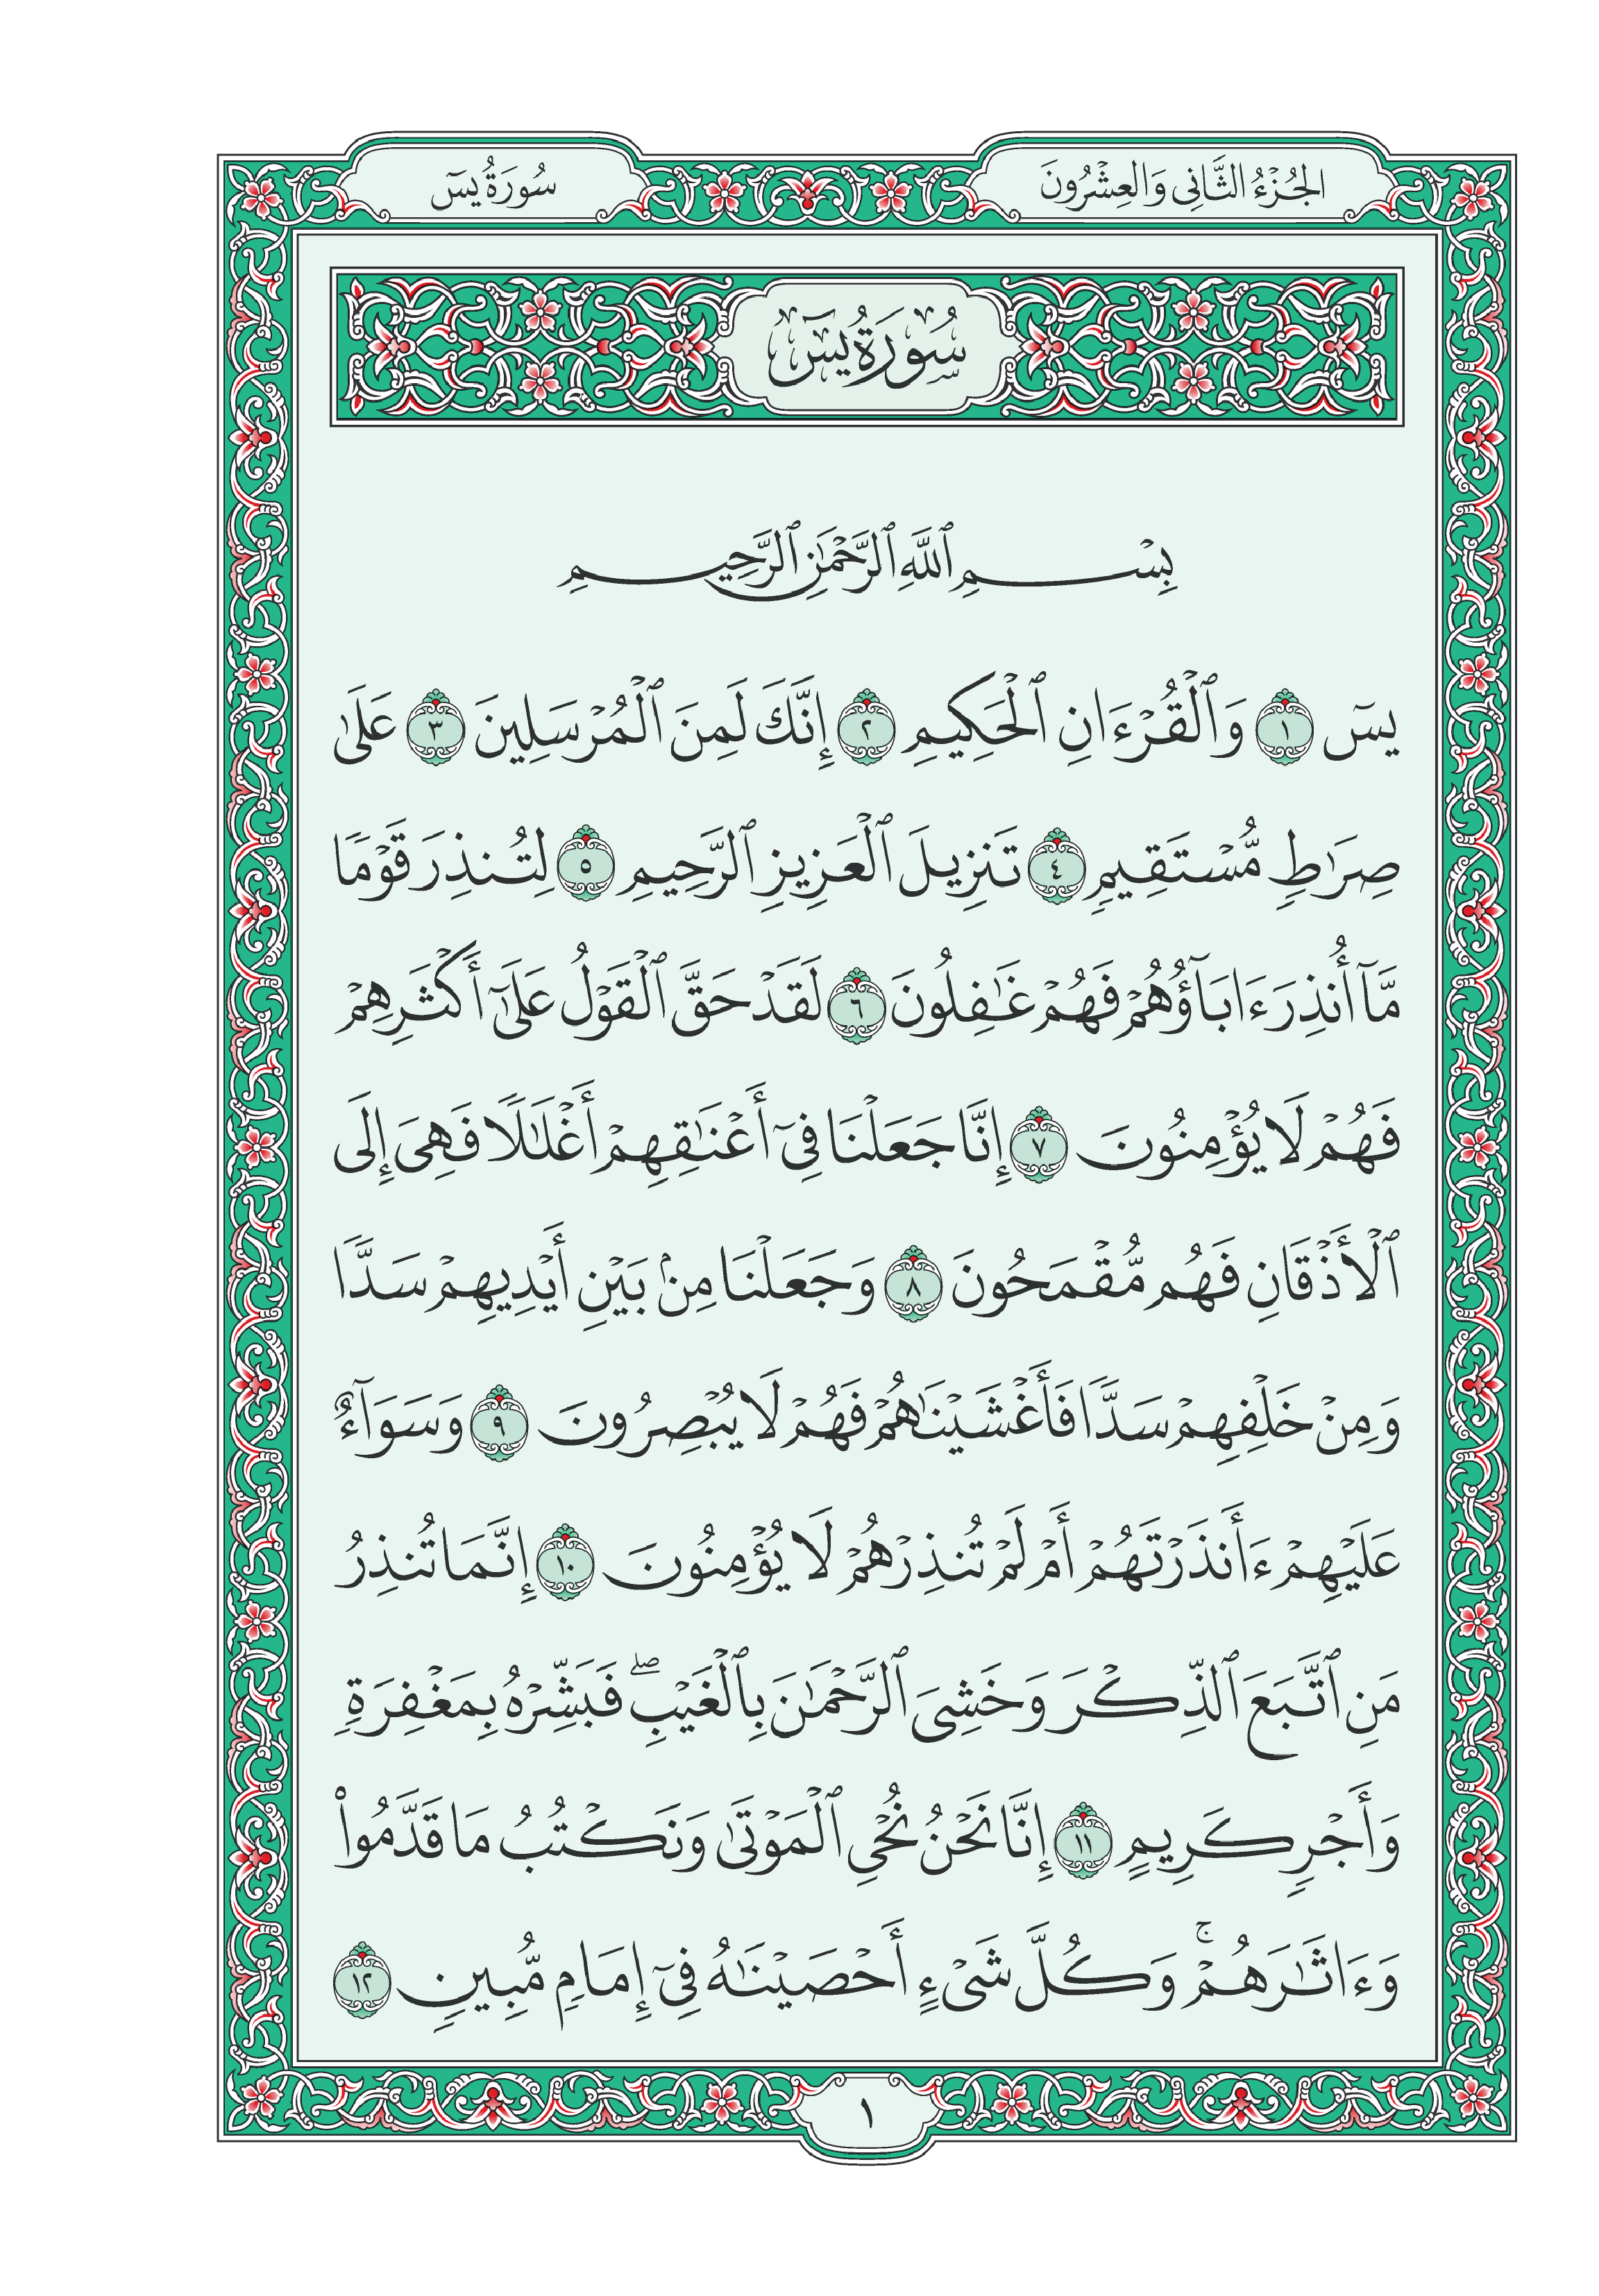 الجُزْءُ الثَّانِى وَالعِشْرُونَ
سُورَةُ يسٓ
سُورَةُ يسٓ
بِسْمِ ٱللَّهِ ٱلرَّحْمَٰنِ ٱلرَّحِيمِ
يسٓ ١ وَٱلْقُرْءَانِ ٱلْحَكِيمِ ٢ إِنَّكَ لَمِنَ ٱلْمُرْسَلِينَ ٣ عَلَىٰ
صِرَٰطٍ مُّسْتَقِيمٍ ٤ تَنزِيلَ ٱلْعَزِيزِ ٱلرَّحِيمِ ٥ لِتُنذِرَ قَوْمًا
مَّآ أُنذِرَ ءَابَآؤُهُمْ فَهُمْ غَٰفِلُونَ ٦ لَقَدْ حَقَّ ٱلْقَوْلُ عَلَىٰٓ أَكْثَرِهِمْ
فَهُمْ لَا يُؤْمِنُونَ ٧ إِنَّا جَعَلْنَا فِىٓ أَعْنَٰقِهِمْ أَغْلَٰلًا فَهِىَ إِلَى
ٱلْأَذْقَانِ فَهُم مُّقْمَحُونَ ٨ وَجَعَلْنَا مِنۢ بَيْنِ أَيْدِيهِمْ سَدًّا
وَمِنْ خَلْفِهِمْ سَدًّا فَأَغْشَيْنَٰهُمْ فَهُمْ لَا يُبْصِرُونَ ٩ وَسَوَآءٌ
عَلَيْهِمْ ءَأَنذَرْتَهُمْ أَمْ لَمْ تُنذِرْهُمْ لَا يُؤْمِنُونَ ١٠ إِنَّمَا تُنذِرُ
مَنِ ٱتَّبَعَ ٱلذِّكْرَ وَخَشِىَ ٱلرَّحْمَٰنَ بِٱلْغَيْبِ ۖ فَبَشِّرْهُ بِمَغْفِرَةٍ
وَأَجْرٍ كَرِيمٍ ١١ إِنَّا نَحْنُ نُحْىِ ٱلْمَوْتَىٰ وَنَكْتُبُ مَا قَدَّمُوا۟
وَءَاثَٰرَهُمْ ۚ وَكُلَّ شَىْءٍ أَحْصَيْنَٰهُ فِىٓ إِمَامٍ مُّبِينٍ ١٢
١